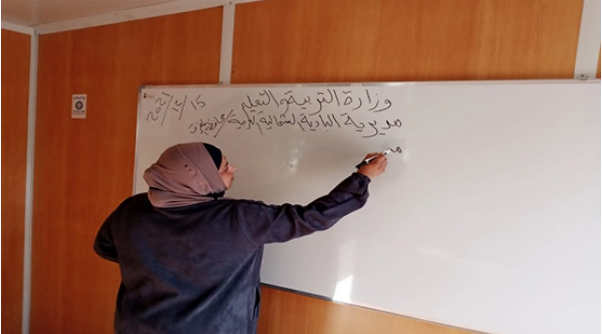 وزارة التربية والتعليم
مديرية البادية الشمالية الغربية /
م